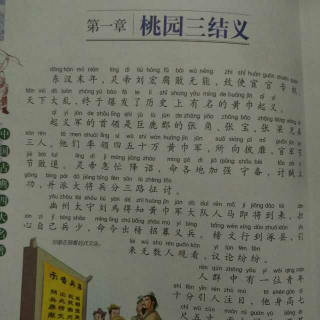 第一章 桃园三结义
东汉末年，灵帝刘宏腐败无能，致使宦官专权，
天下大乱，终于爆发了历史上有名的黄巾起义。
起义军的首领是巨鹿郡的张角、张宝、张梁兄弟
三人。他们率领四五十万黄巾军，所向披靡，官军节
节败退。灵帝急忙降诏，命各地加强守备，讨贼立
功，并派大将兵分三路征讨。
幽州太守刘焉得知黄巾军大队人马即将到来，担
心自己兵少，命令出榜招募义兵。榜文行到涿县，引
来无数人观看，议论纷纷。
人群中有一位青年
十分引人注目，他身高七
中国古典四大名著